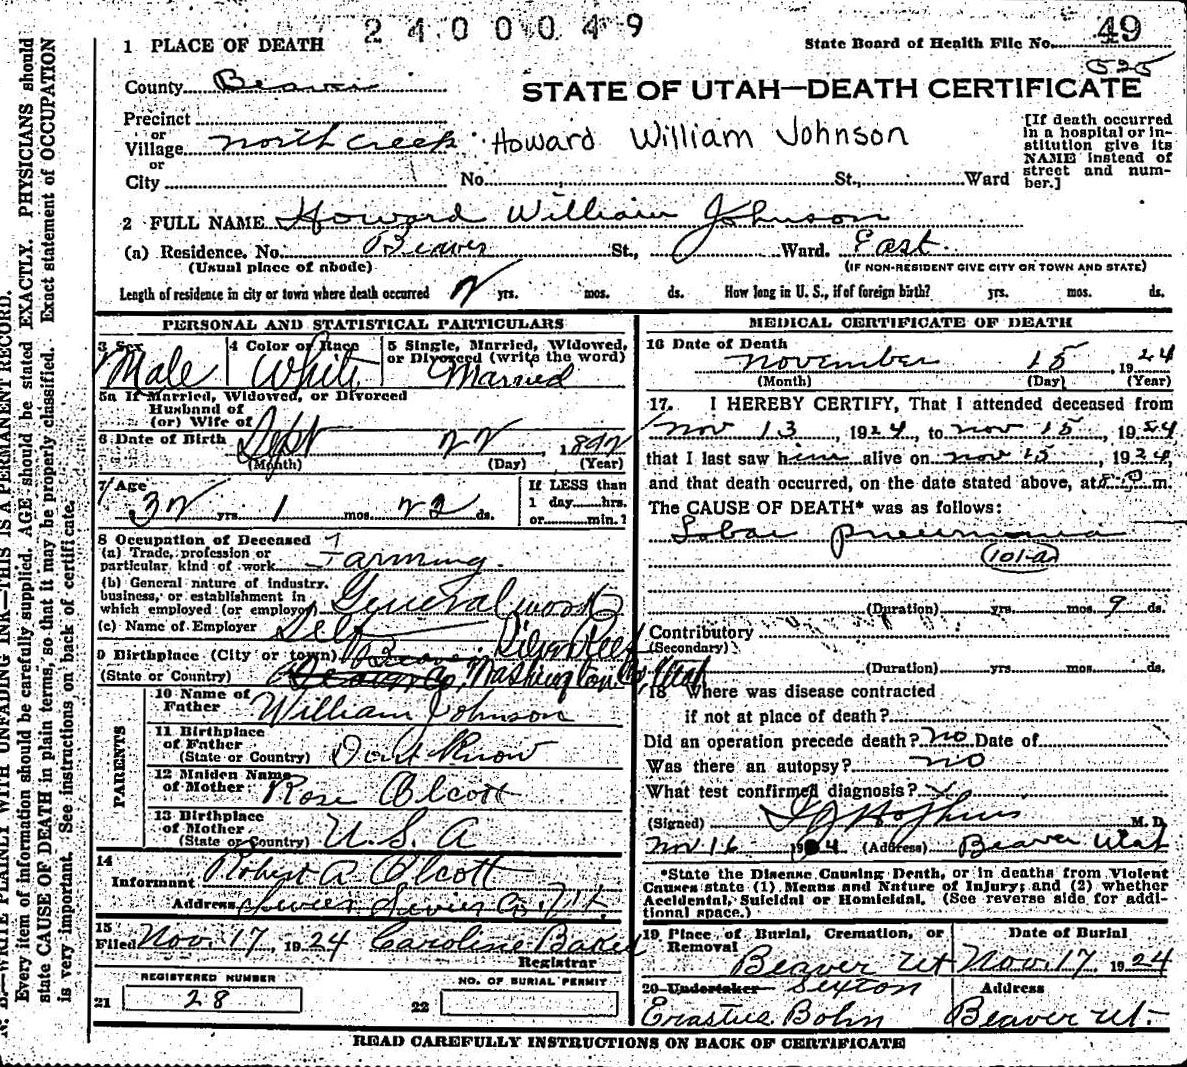 2400049
1 PLACE OF DEATH
State Board of Health File No. 49
County Beaver
525
STATE OF UTAH—DEATH CERTIFICATE
Precinct
or
Village North Creek Howard William Johnson
or
City No. St., Ward
[If death occurred
in a hospital or in-
stitution give its
NAME instead of
street and num-
ber.]
2 FULL NAME Howard William Johnson
(a) Residence. No. Beaver St., Ward. East.
(Usual place of abode)
(IF NON-RESIDENT GIVE CITY OR TOWN AND STATE)
Length of residence in city or town where death occurred yrs. mos. ds. How long in U. S., if of foreign birth? yrs. mos. ds.
PERSONAL AND STATISTICAL PARTICULARS
3 Sex
Male
4 Color or Race
White
5 Single, Married, Widowed,
or Divorced (write the word)
Married
5a If Married, Widowed, or Divorced
Husband of
(or) Wife of
6 Date of Birth Sept 22, 1892
(Month) (Day) (Year)
7 Age
32 yrs. 1 mos. 23 ds.
If LESS than
1 day hrs.
or min.?
8 Occupation of Deceased
(a) Trade, profession or
particular kind of work Farming
(b) General nature of industry,
business, or establishment in
which employed (or employer) General work
(c) Name of Employer Self
9 Birthplace (City or town) Beaver Silver Reef
(State or Country) Beaver Co, Washington Co, Utah
PARENTS
10 Name of
Father William Johnson
11 Birthplace
of Father
(State or Country) Dont Know
12 Maiden Name
of Mother Rose Olcott
13 Birthplace
of Mother
(State or Country) U.S.A
14
Informant Robert A Olcott
Address Sevier Sevier Co. Ut.
15
Filed Nov. 17, 1924 Caroline Baker
Registrar
REGISTERED NUMBER
21 28
NO. OF BURIAL PERMIT
22
MEDICAL CERTIFICATE OF DEATH
16 Date of Death
November 15, 1924
(Month) (Day) (Year)
17. I HEREBY CERTIFY, That I attended deceased from
Nov 13, 1924, to Nov 15, 1924
that I last saw him alive on Nov 15, 1924,
and that death occurred, on the date stated above, at 8 P m.
The CAUSE OF DEATH* was as follows:
Lobar pneumonia
101-a
(Duration) yrs. mos. 9 ds.
Contributory
(Secondary)
(Duration) yrs. mos. ds.
18 Where was disease contracted
if not at place of death?
Did an operation precede death? no Date of
Was there an autopsy? no
What test confirmed diagnosis?
(Signed) M. D.
Nov 16 1924 (Address) Beaver Utah
*State the Disease Causing Death, or in deaths from Violent
Causes state (1) Means and Nature of Injury; and (2) whether
Accidental, Suicidal or Homicidal. (See reverse side for addi-
tional space.)
19 Place of Burial, Cremation, or
Removal
Beaver Ut
Date of Burial
Nov. 17, 1924
20 Undertaker Sexton
Erastus Bohn
Address
Beaver Ut.
READ CAREFULLY INSTRUCTIONS ON BACK OF CERTIFICATE
N. B.—WRITE PLAINLY WITH UNFADING INK—THIS IS A PERMANENT RECORD.
Every item of information should be carefully supplied. AGE should be stated EXACTLY. PHYSICIANS should
state CAUSE OF DEATH in plain terms, so that it may be properly classified. Exact statement of OCCUPATION
is very important. See instructions on back of certificate.